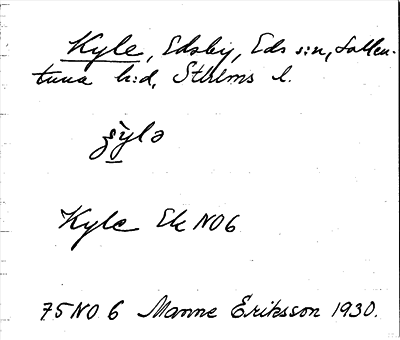 Kyle, Edsby, Eds s:n, Sollen-
tuna h:d, Sthlms l.
Kyle Ek NO6
75 NO 6 Manne Eriksson 1930.